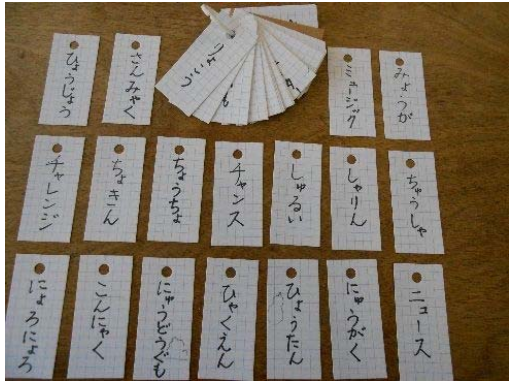 ひょうじょう
さんみゃく
りょこう
ミュージック
みょうが
チャレンジ
ちょきん
ちょうちょ
チャンス
しゅるい
しゃりん
ちゅうしゃ
にょろにょろ
こんにゃく
にゅうどうぐも
ひゃくえん
ひょうたん
にゅうがく
ニュース